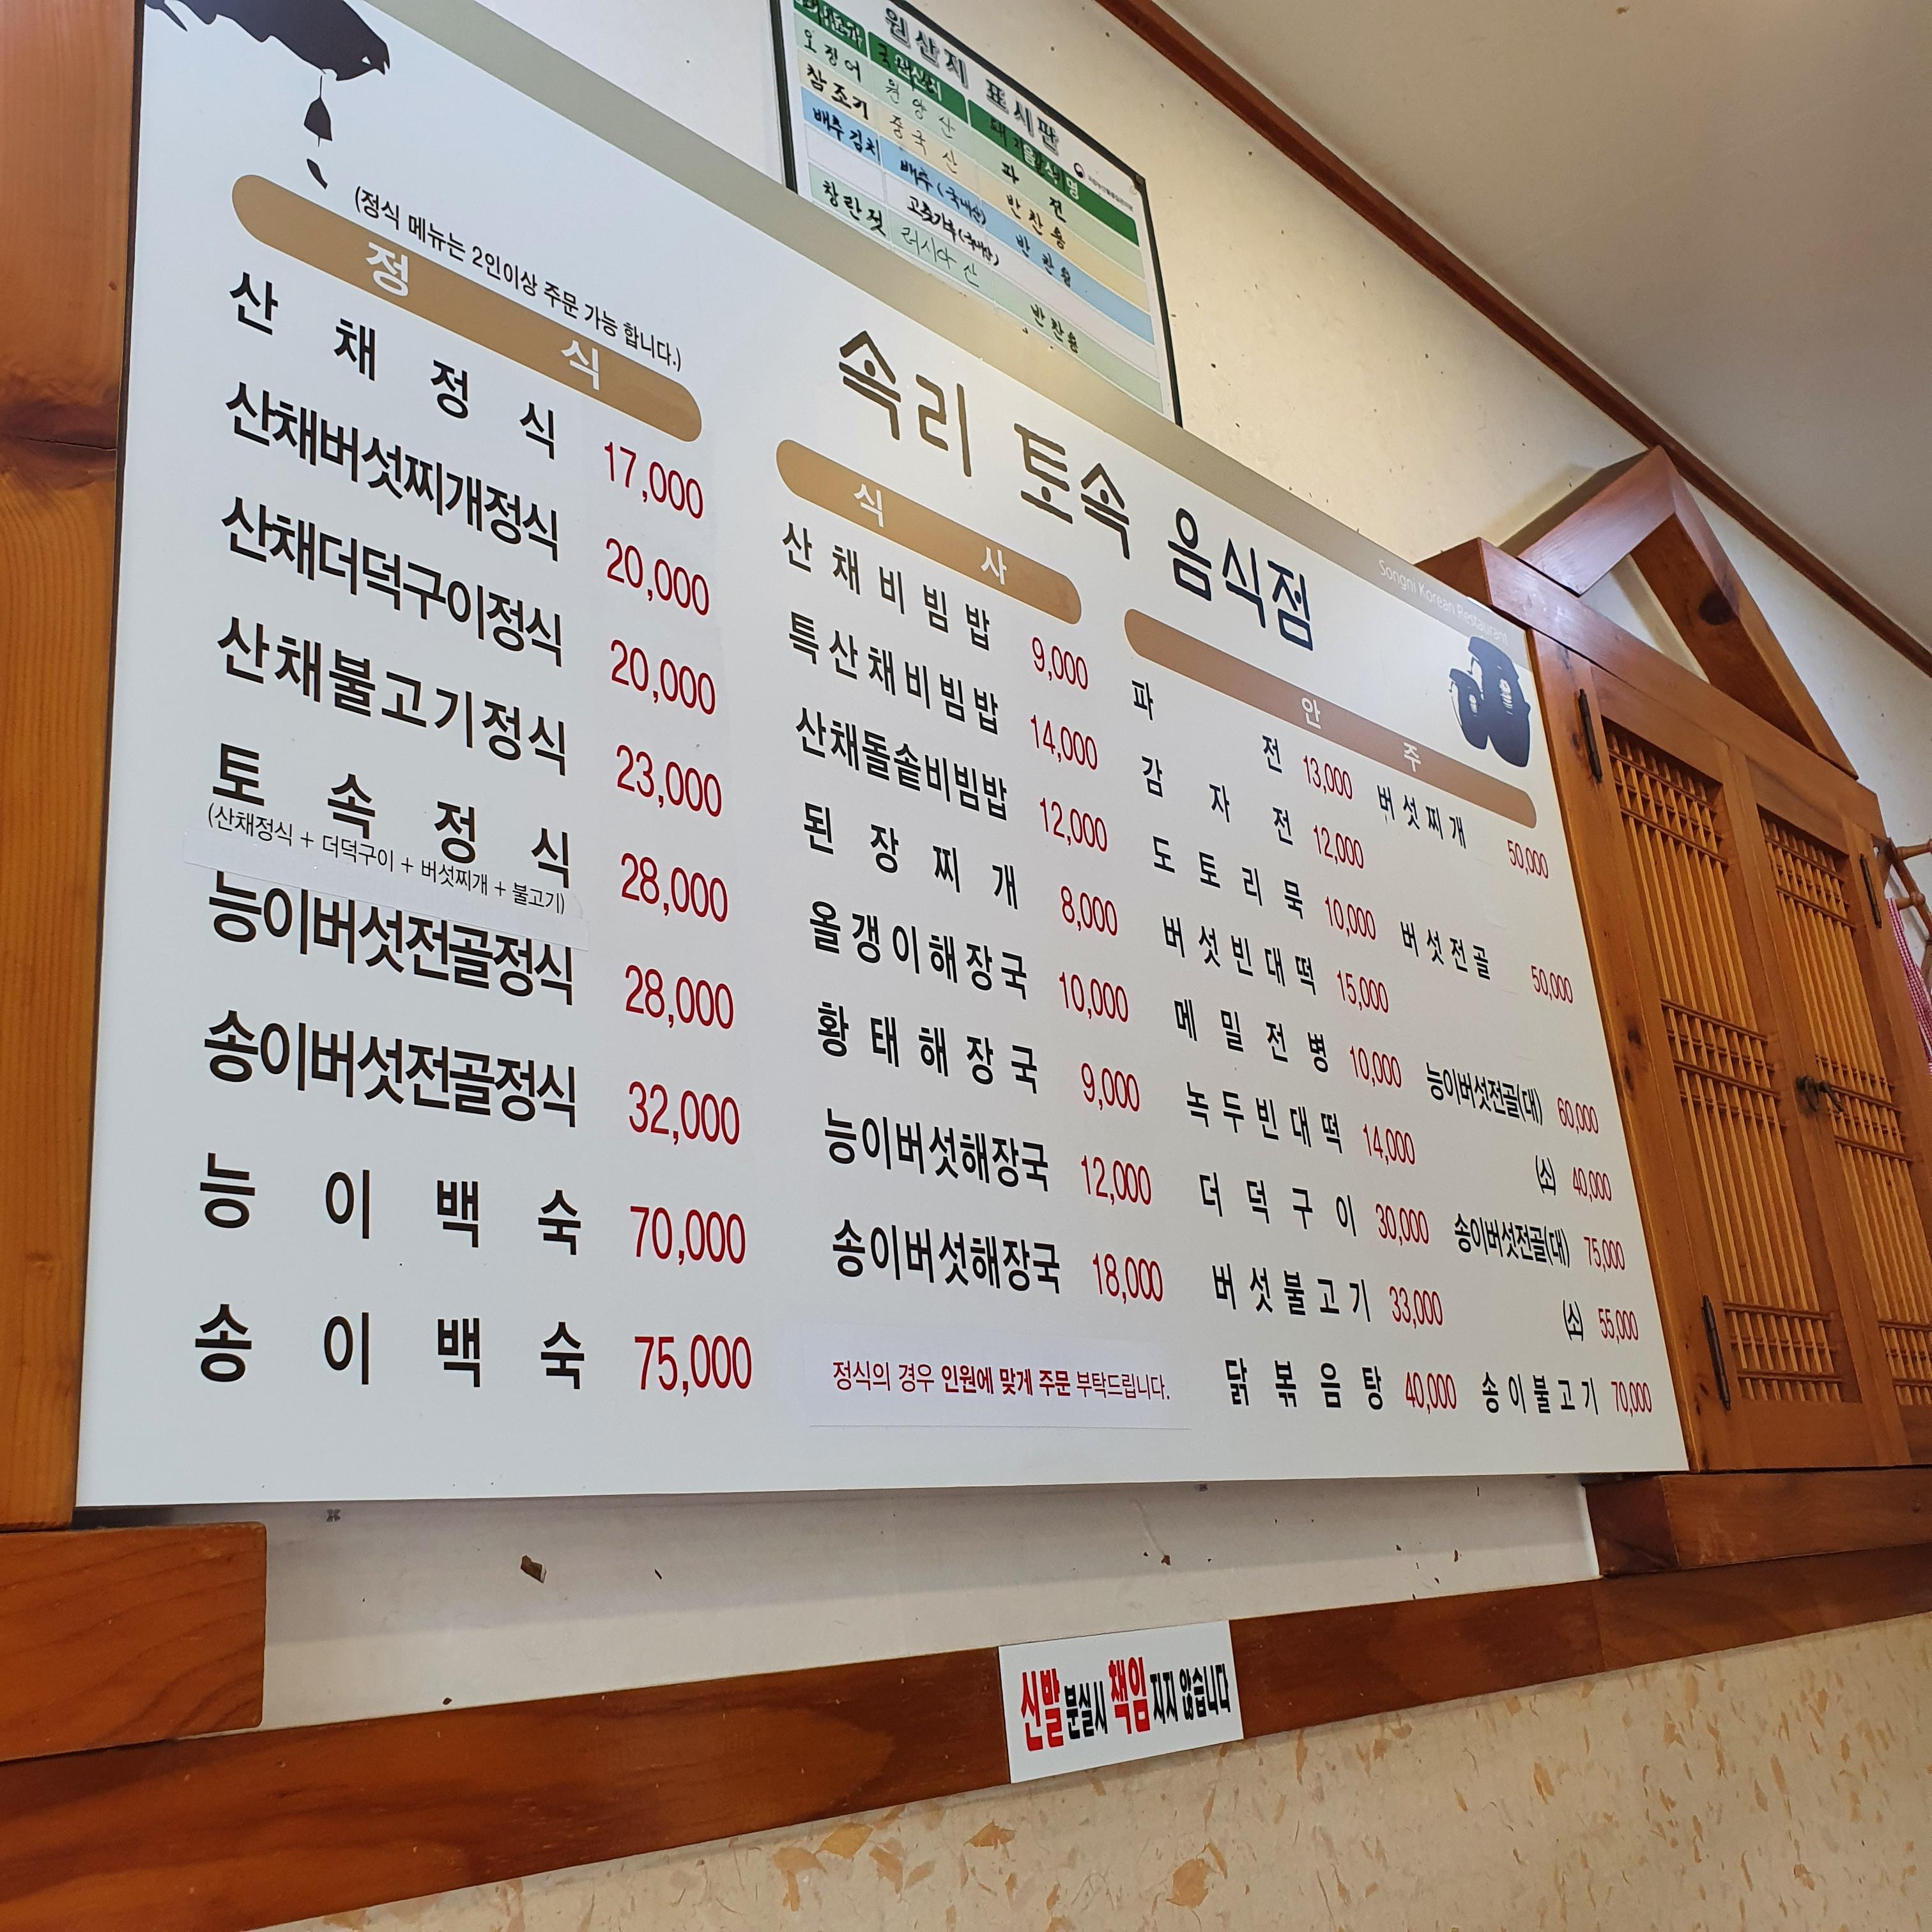 원산지 표시판
오징어 원양산 파 전
참조기 중국산 반찬용
배추김치 배추(국내산) 반찬용
고춧가루(국내산)
창란젓 러시아산 반찬용
속리 토속 음식점
Songni Korean Restaurant
(정식 메뉴는 2인이상 주문 가능 합니다.)
정 식
산 채 정 식 17,000
산채버섯찌개정식 20,000
산채더덕구이정식 20,000
산채불고기정식 23,000
토 속 정 식 28,000
(산채정식 + 더덕구이 + 버섯찌개 + 불고기)
능이버섯전골정식 28,000
송이버섯전골정식 32,000
능 이 백 숙 70,000
송 이 백 숙 75,000
식 사
산 채 비 빔 밥 9,000
특산채비빔밥 14,000
산채돌솥비빔밥 12,000
된 장 찌 개 8,000
올갱이해장국 10,000
황 태 해 장 국 9,000
능이버섯해장국 12,000
송이버섯해장국 18,000
정식의 경우 인원에 맞게 주문 부탁드립니다.
안 주
파 전 13,000
감 자 전 12,000
도 토 리 묵 10,000
버 섯 빈 대 떡 15,000
메 밀 전 병 10,000
녹 두 빈 대 떡 14,000
더 덕 구 이 30,000
버 섯 불 고 기 33,000
닭 볶 음 탕 40,000
버 섯 찌 개 50,000
버 섯 전 골 50,000
능이버섯전골(대) 60,000
(소) 40,000
송이버섯전골(대) 75,000
(소) 55,000
송 이 불 고 기 70,000
신발 분실시 책임 지지 않습니다